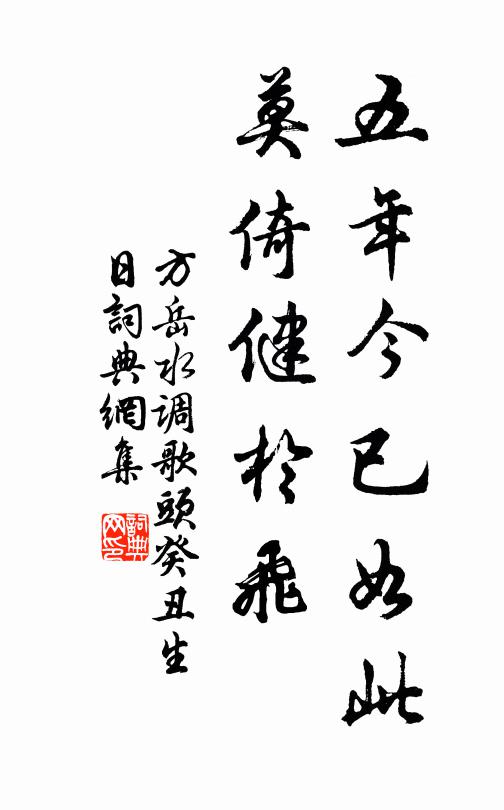 五年今已如此
莫倚健於飛
方岳水调歌頭癸丑生
日詞典網集
詞典网印